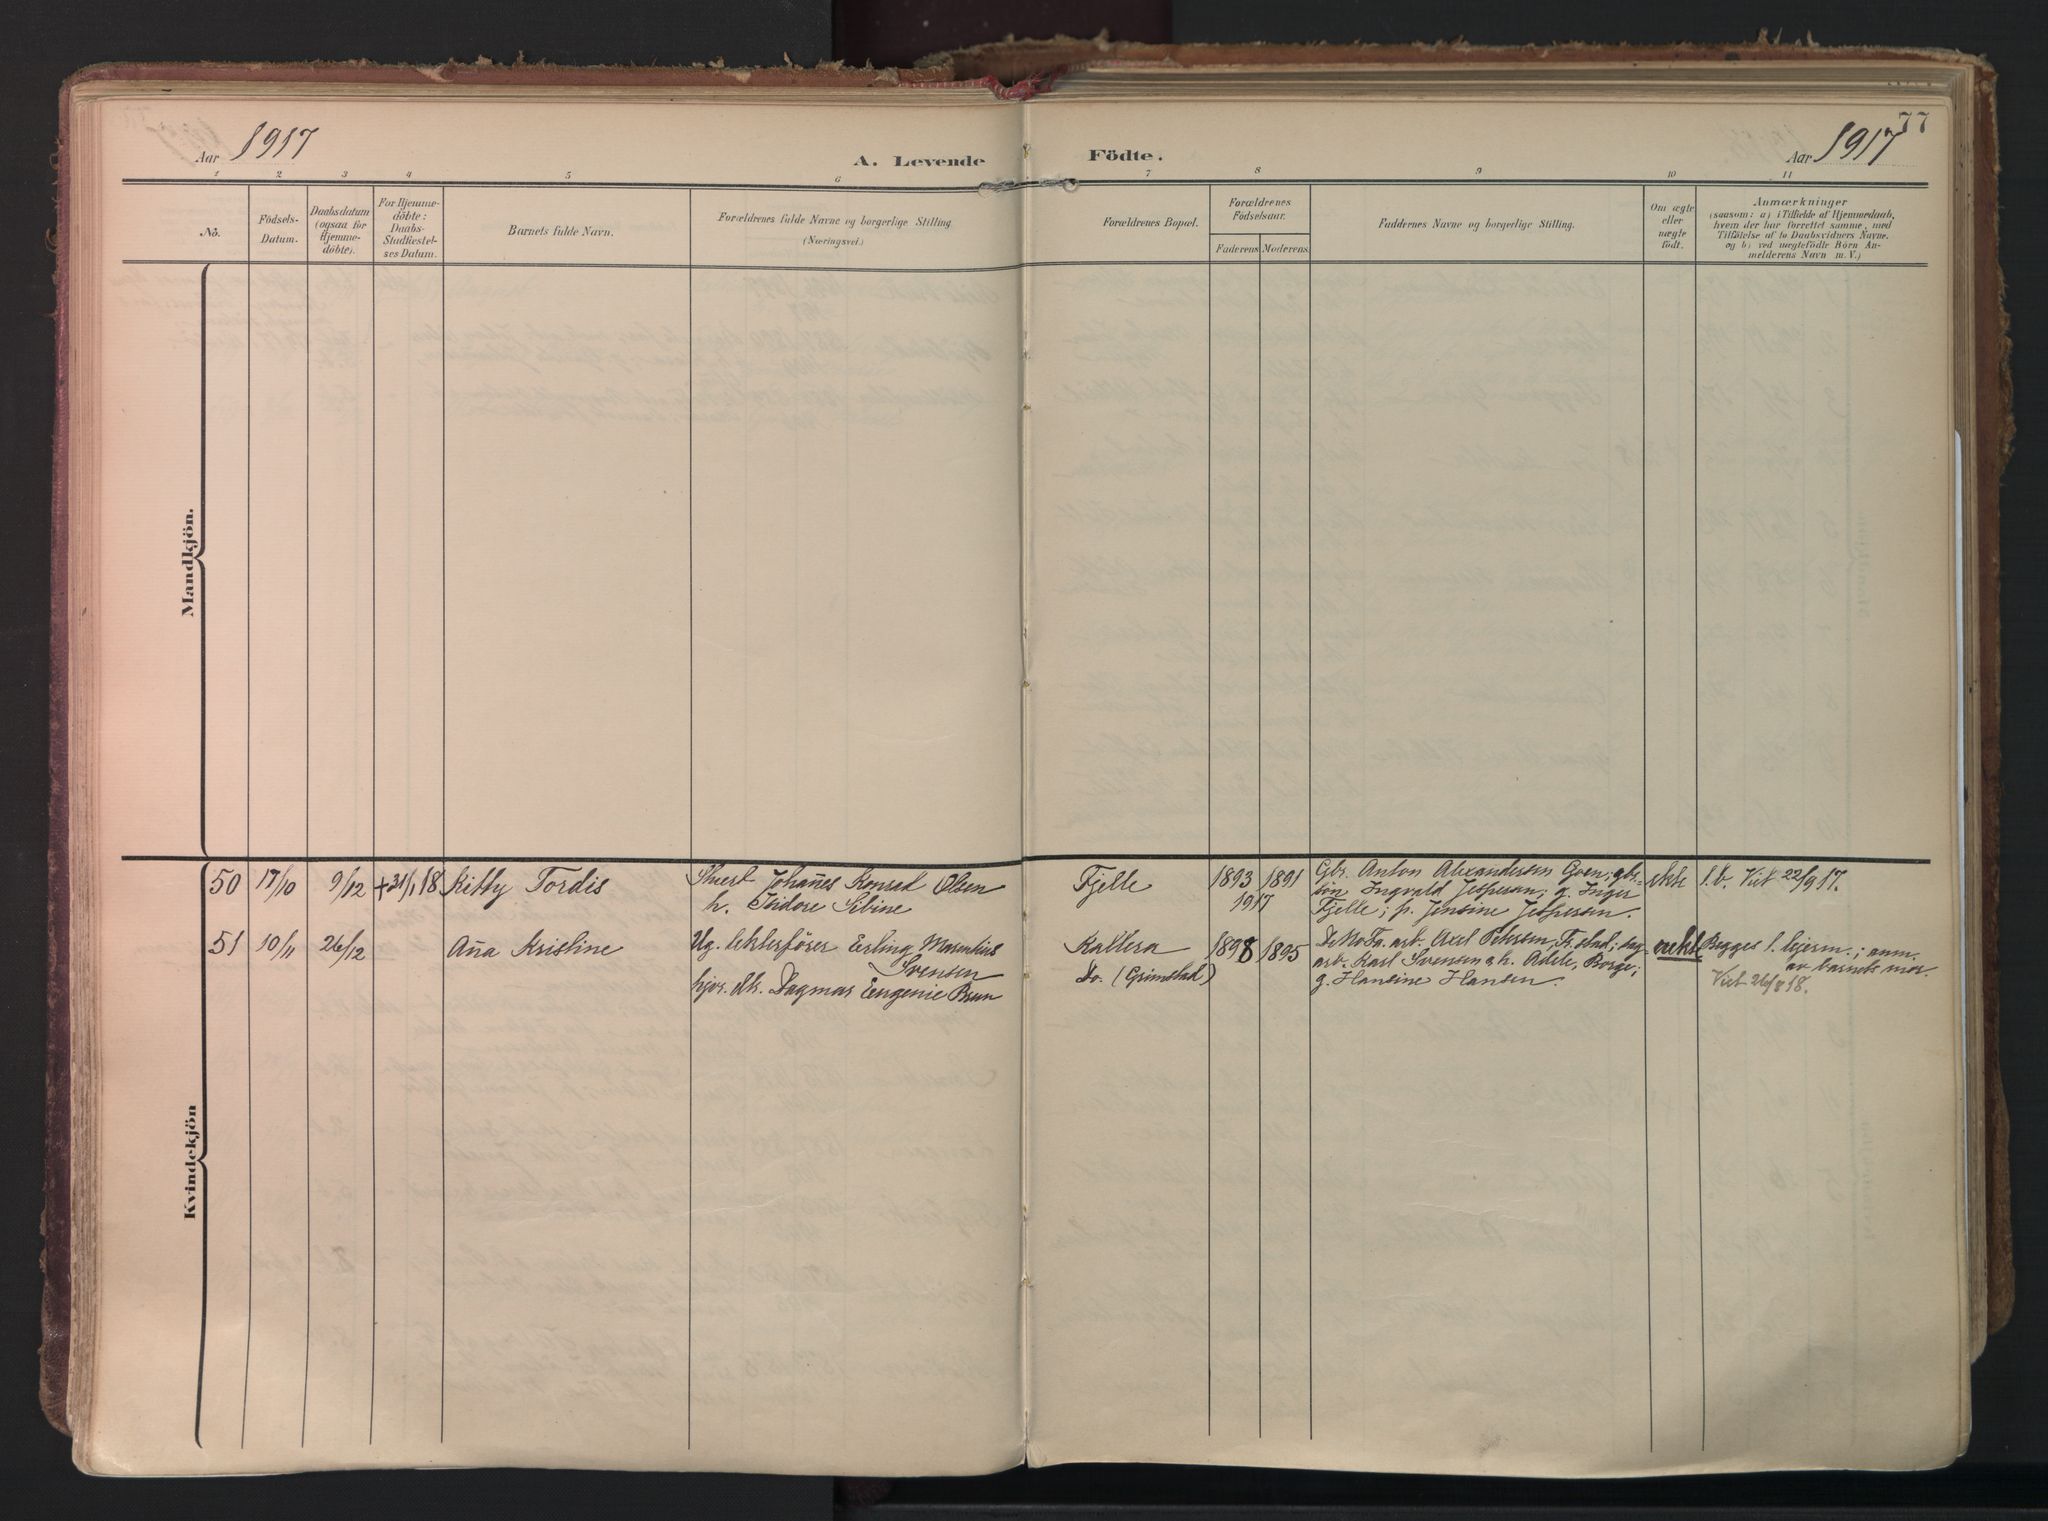 77
Aar 1917
A. Levende Födte.
Aar 1917
1 2 3 4 5 6 7 8 9 10 11
No.
Födsels-
Datum.
Daabsdatum
(ogsaa for
Hjemme-
döbte).
For Hjemme-
döbte:
Daabs-
Stadfæstel-
ses Datum.
Barnets fulde Navn.
Forældrenes fulde Navne og borgerlige Stilling
(Næringsvei.)
Forældrenes Bopæl.
Forældrenes
Födselsaar.
Faderens Moderens.
Faddernes Navne og borgerlige Stilling.
Om ægte
eller
uægte
födt.
Anmærkninger
(saasom: a) i Tilfælde af Hjemmedaab,
hvem der har forrettet samme, med
Tilföielse af to Daabsvidners Navne.
og b) ved uægtefödte Börn An-
melderens Navn m. V.)
Mandkjön.
Kvindekjön
50 17/10 9/12 +31/1 18 Kitty Tordis
Johañes Konrad Olsen
h. Isidore Sibine
Fjelle
1893 1891
1917
Gbr. Anton Alexandersen Goen; gbr.
sön Ingvald Jespersen; g. Inger
Fjelle; p. Jensine Jespersen.
ekte
l.b. Viet 22/9 17.
51 10/11 26/12 Aña Kristine
Ug. lekterförer Erling Marentius
Svensen
hjvs. dk. Dagmar Eugenie Brun
Kallera
Do. (Grimstad)
1898 1895
DeNoFa. arb. Axel Petersen, Fr.stad; dag-
arb. Karl Svensen & h. Adele, Borge;
g. Hansine Hansen.
uekte
Begges l. lejerm.; anm.
av barnets mor.
Viet 26/8 18.